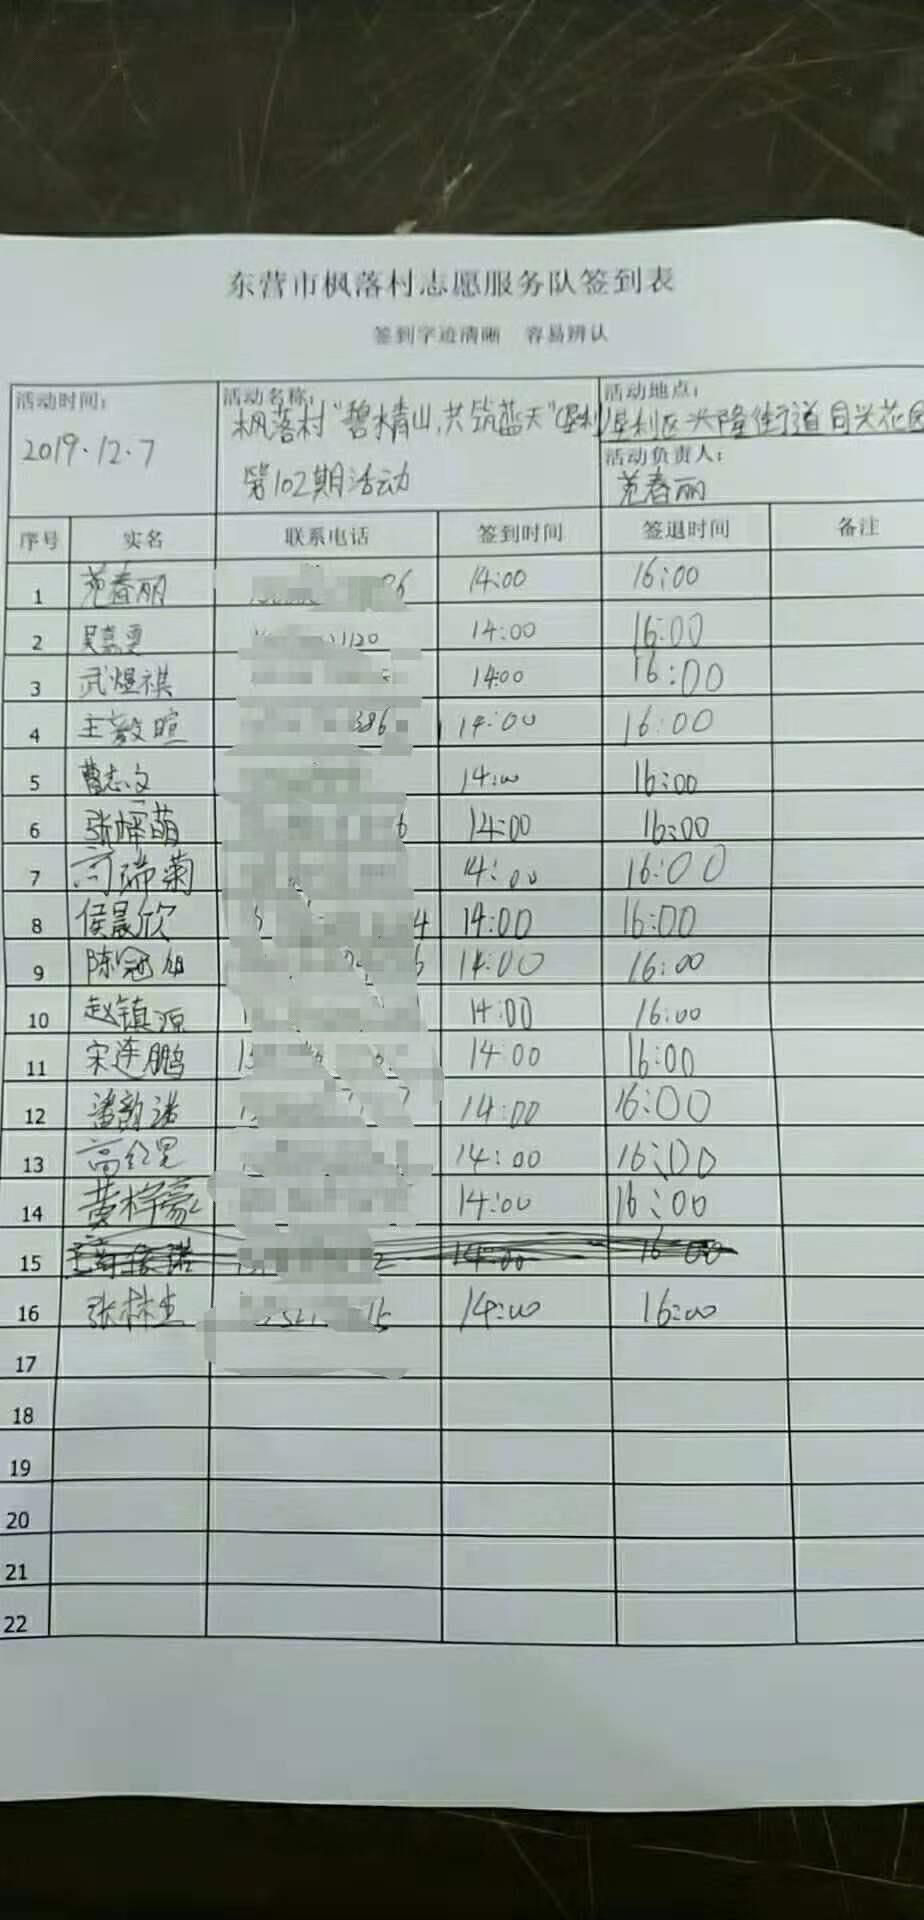 东营市枫落村志愿服务队签到表
签到字迹清晰 容易辨认
活动时间：
2019.12.7
活动名称：
枫落村"碧水青山，共筑蓝天"(垦利)
第102期活动
活动地点：
垦利区兴隆街道同兴花园
活动负责人：
范春丽
序号 实名 联系电话 签到时间 签退时间 备注
1 范春丽 14:00 16:00
2 1120 14:00 16:00
3 武煜祺 14:00 16:00
4 王敦暄 386 14:00 16:00
5 曹志文 14:00 16:00
6 张梓萌 6 14:00 16:00
7 高瑞菊 14:00 16:00
8 侯晨欣 4 14:00 16:00
9 陈冠旭 6 14:00 16:00
10 赵镇源 14:00 16:00
11 宋连鹏 14:00 16:00
12 潘韵诺 14:00 16:00
13 14:00 16:00
14 黄梓豪 14:00 16:00
15 14:00 16:00
16 张林生 14:00 16:00
17
18
19
20
21
22